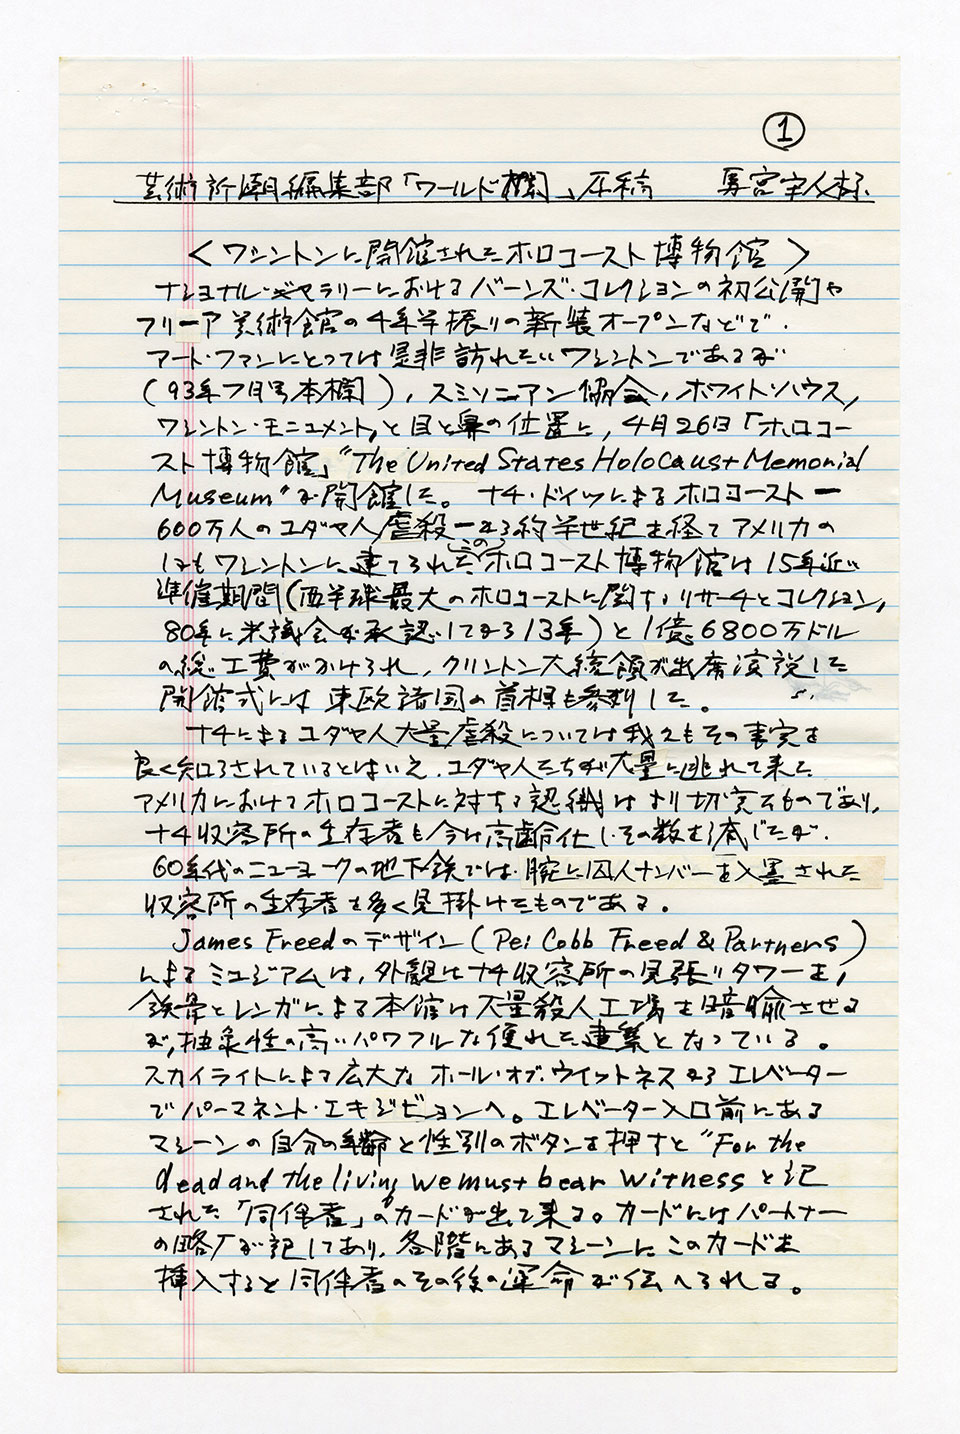 ①
芸術新潮編集部「ワールド欄」原稿
<ワシントンに開館されたホロコースト博物館>
ナショナル・ギャラリーにおけるバーンズ・コレクションの初公開や
フリーア美術館の4年半振りの新装オープンなどで、
アート・ファンにとっては是非訪れたいワシントンであるが
(93年7月号本欄)，スミソニアン協会，ホワイトハウス，
ワシントン・モニュメント，と目と鼻の位置に，4月26日「ホロコー
スト博物館」"The United States Holocaust Memorial
Museum"が開館した。ナチ・ドイツによるホロコースト―
600万人のユダヤ人虐殺―から約半世紀を経てアメリカの
ワシントンに建てられたこのホロコースト博物館は15年近い
準備期間(西半球最大のホロコーストに関するリサーチとコレクション，
80年に米議会が承認してから13年)と1億6800万ドル
の総工費がかけられ，クリントン大統領が出席演説した
開館式には東欧諸国の首相も参列した。
ナチによるユダヤ人大量虐殺については我々もその事実を
良く知らされているとはいえ，ユダヤ人たちが大量に逃れて来た
アメリカにおけるホロコーストに対する認識はより切実なものであり，
ナチ収容所の生存者も今は高齢化しその数も減じたが，
60年代のニューヨークの地下鉄では，腕に囚人ナンバーを入墨された
収容所の生存者を多く見掛けたものである。
James Freedのデザイン(Pei Cobb Freed & Partners)
によるミュジアムは，外観はナチ収容所の見張りタワーを，
鉄骨とレンガによる本館は大量殺人工場を暗喩させる
が，抽象性の高いパワフルな優れた建築となっている。
スカイライトによる広大なホール・オブ・ウイットネスからエレベーター
でパーマネント・エキジビションへ。エレベーター入口前にある
マシーンの自分の年齢と性別のボタンを押すと"For the
dead and the living we must bear witnessと記
された「同伴者」のカードが出て来る。カードにはパートナー
の略歴が記してあり，各階にあるマシーンにこのカードを
挿入すると同伴者のその後の運命が伝へられる。